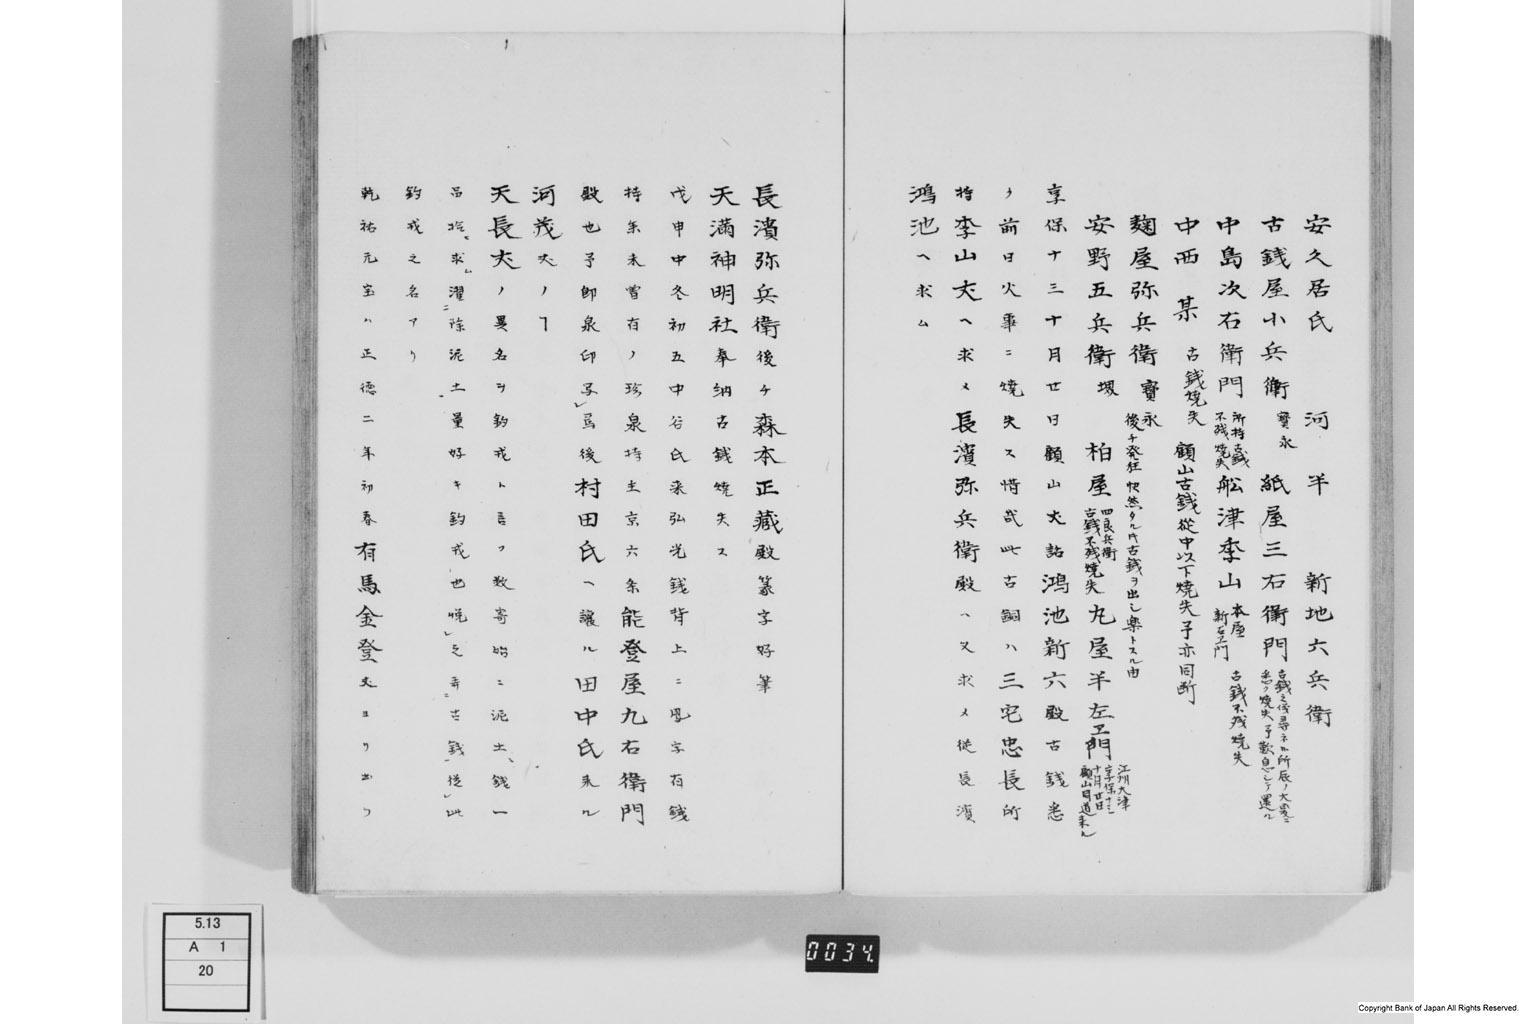 安久居氏　河　半　新地六兵衛
古銭屋小兵衛　寶永　紙屋三右衛門
中島次右衛門　所持古銭不残焼失　船津季山　本屋新右ヱ門　古銭不残焼失
中西　某　古銭焼失　顧山古銭従中以下焼失予亦同断
麹屋弥兵衛　寶永　後チ発狂　快然タル氏古銭ヲ出シ樂トスル由
安野五兵衛　堺　柏屋四良兵衛　古銭不残焼失　丸屋半左ヱ門　江州大津　享保十三十月廿日　顧山同道来ル
享保十三十月廿日顧山丈訪鴻池新六殿古銭悉
ク前日火事ニ焼失ス惜哉此古銅ハ三宅忠長所
持季山丈ヘ求メ長濱弥兵衛殿ヘ又求メ従長濱
鴻池ヘ求ム
長濱弥兵衛後チ森本正蔵殿篆字好筆
天満神明社奉納古銭焼失ス
戊申中冬初五中谷氏来弘光銭背上ニ鳳字有銭
持来未曽有ノ珍泉持主京六条能登屋九右衛門
殿也予即泉印写ㇾ焉後村田氏ヘ譲ル田中氏来ル
河茂丈ノヿ
天長丈ノ異名ヲ釣戎ト言フ数寄始ニ泥土ㇵ銭一
濯ニ除泥土ㇵ量好キ釣戎也悦ㇾ之寄ニ古銭ㇵ従ㇾ此
釣戎之名アリ
乾祐元宝ハ正徳二年初春有馬金登丈ヨリ出ツ
5.13
A 1
20
0034.
Copyright Bank of Japan All Rights Reserved.